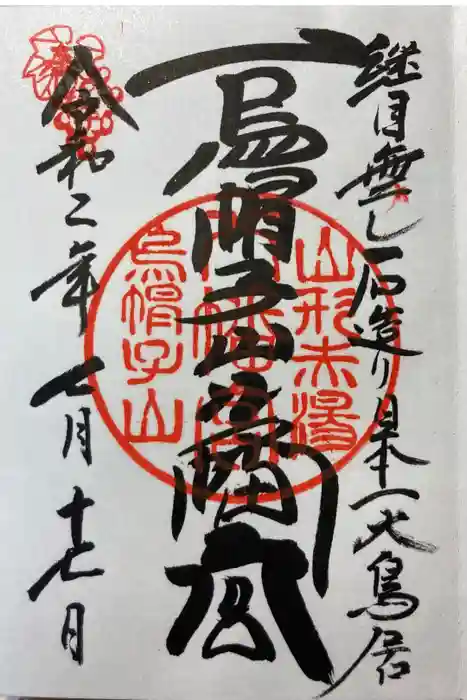 継目無し一石造り日本一大鳥居
烏帽子山八幡宮
令和二年七月十七日
山形赤湯
烏帽子山